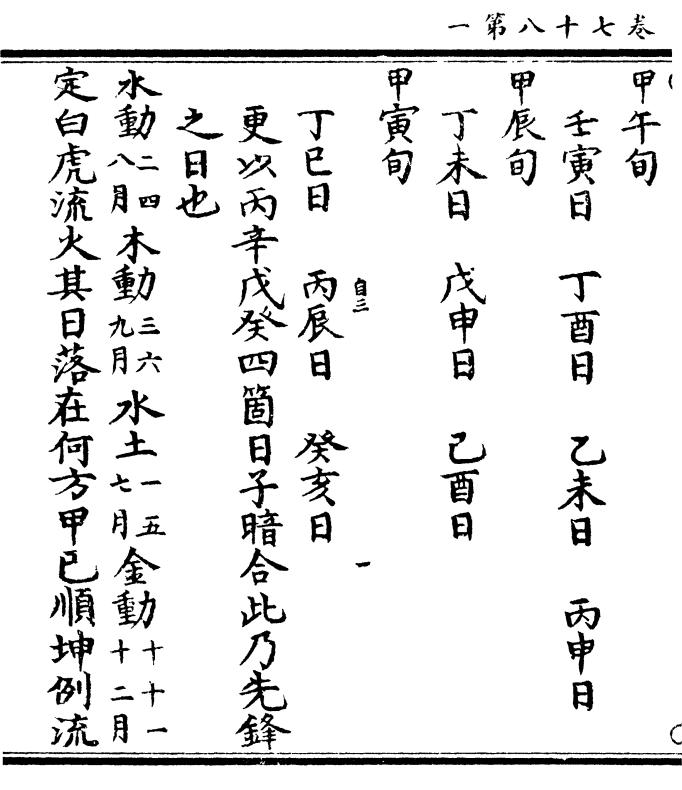 卷七十八第一
甲午旬
壬寅日　丁酉日　乙未日　丙申日
甲辰旬
丁未日　戊申日　己酉日
甲寅旬
自三　一
丁巳日　丙辰日　癸亥日
更以丙辛戊癸四箇日子暗合此乃先鋒
之日也
水動二四八月木動三六九月水土一五七月金動十十一十二月
定白虎流火其日落在何方甲已順坤例流